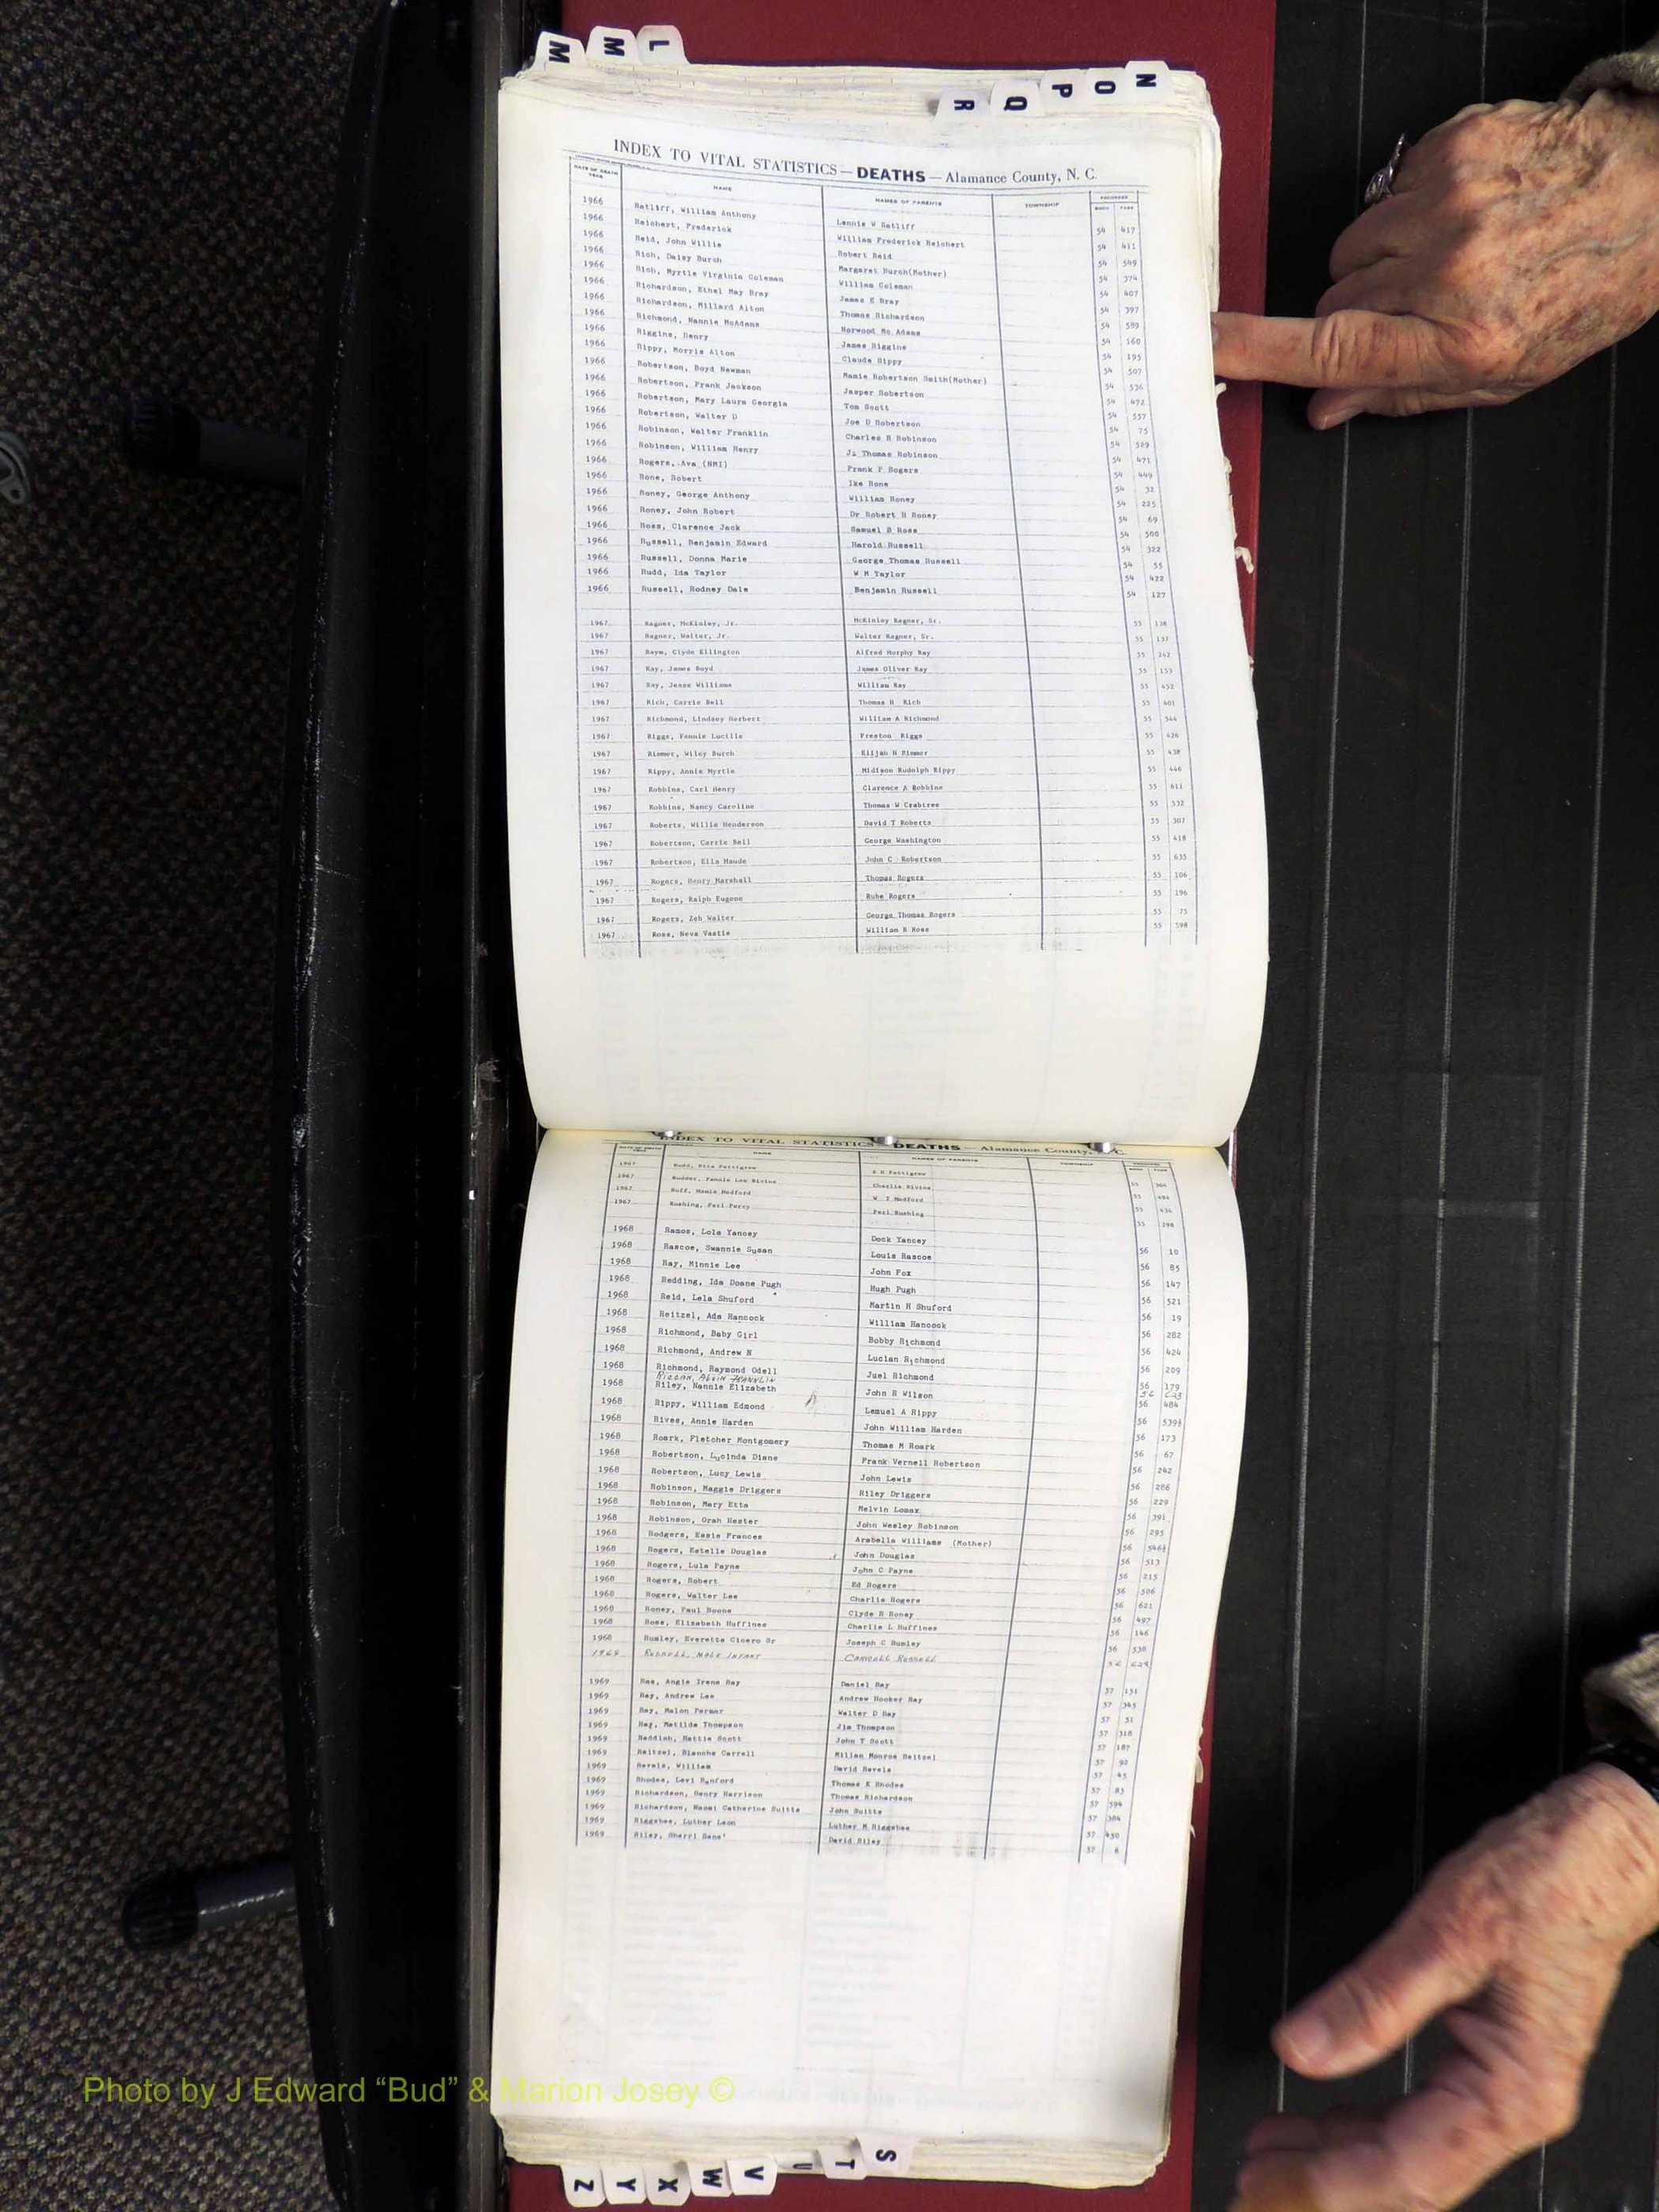 M M L
R Q P O N
INDEX TO VITAL STATISTICS — DEATHS — Alamance County, N. C.
DATE OF DEATH YEAR NAME NAMES OF PARENTS TOWNSHIP RECORDED BOOK PAGE
1966 Ratliff, William Anthony Lennie W Ratliff 54 417
1966 Reichert, Frederick William Frederick Reichert 54 411
1966 Reid, John Willie Robert Reid 54 549
1966 Rich, Daisy Burch Margaret Burch(Mother) 54 374
1966 Rich, Myrtle Virginia Coleman William Coleman 54 407
1966 Richardson, Ethel May Bray James E Bray 54 397
1966 Richardson, Millard Alton Thomas Richardson 54 589
1966 Richmond, Nannie McAdams Norwood Mc Adams 54 160
1966 Riggins, Henry James Riggins 54 195
1966 Rippy, Morris Alton Claude Rippy 54 507
1966 Robertson, Boyd Newman Mamie Robertson Smith(Mother) 54 536
1966 Robertson, Frank Jackson Jasper Robertson 54 472
1966 Robertson, Mary Laura Georgia Tom Scott 54 557
1966 Robertson, Walter D Joe D Robertson 54 75
1966 Robinson, Walter Franklin Charles R Robinson 54 529
1966 Robinson, William Henry J. Thomas Robinson 54 471
1966 Rogers, Ava (NMI) Frank P Rogers 54 449
1966 Rone, Robert Ike Rone 54 32
1966 Roney, George Anthony William Roney 54 225
1966 Roney, John Robert Dr Robert H Roney 54 69
1966 Ross, Clarence Jack Samuel B Ross 54 500
1966 Russell, Benjamin Edward Harold Russell 54 322
1966 Russell, Donna Marie George Thomas Russell 54 55
1966 Rudd, Ida Taylor W M Taylor 54 422
1966 Russell, Rodney Dale Benjamin Russell 54 127
1967 Ragner, McKinley, Jr. McKinley Ragner, Sr. 55 138
1967 Ragner, Walter, Jr. Walter Ragner, Sr. 55 137
1967 Raye, Clyde Ellington Alfred Murphy Ray 55 242
1967 Ray, James Boyd James Oliver Ray 55 153
1967 Ray, Jesse Williams William Ray 55 452
1967 Rich, Carrie Bell Thomas H Rich 55 401
1967 Richmond, Lindsey Herbert William A Richmond 55 544
1967 Riggs, Fannie Lucille Preston Riggs 55 426
1967 Rimmer, Wiley Burch Elijah H Rimmer 55 438
1967 Rippy, Annie Myrtle Midison Rudolph Rippy 55 446
1967 Robbins, Carl Henry Clarence A Robbins 55 611
1967 Robbins, Nancy Caroline Thomas W Crabtree 55 332
1967 Roberts, Willie Henderson David T Roberts 55 307
1967 Robertson, Carrie Bell George Washington 55 418
1967 Robertson, Ella Maude John C Robertson 55 635
1967 Rogers, Henry Marshall Thomas Rogers 55 106
1967 Rogers, Ralph Eugene Rube Rogers 55 196
1967 Rogers, Zeb Walter George Thomas Rogers 55 75
1967 Ross, Neva Vastie William R Ross 55 598
INDEX TO VITAL STATISTICS — DEATHS — Alamance County, N. C.
DATE OF DEATH YEAR NAME NAMES OF PARENTS TOWNSHIP RECORDED BOOK PAGE
1967 Rudd, Etta Pettigrew S R Pettigrew 55 304
1967 Rudder, Fannie Lee Rivins Charlie Rivins 55 494
1967 Ruff, Mamie Medford W T Medford 55 434
1967 Rushing, Perl Percy Perl Rushing 55 298
1968 Ramos, Lola Yancey Dock Yancey 56 10
1968 Rascoe, Swannie Susan Louis Rascoe 56 85
1968 Ray, Minnie Lee John Fox 56 147
1968 Redding, Ida Doane Pugh Hugh Pugh 56 521
1968 Reid, Lela Shuford Martin H Shuford 56 19
1968 Reitzel, Ada Hancock William Hancock 56 282
1968 Richmond, Baby Girl Bobby Richmond 56 424
1968 Richmond, Andrew N Lucian Richmond 56 209
1968 Richmond, Raymond Odell Juel Richmond 56 179
RIGGAN, ALVIN FRANKLIN 56 623
1968 Riley, Nannie Elizabeth John R Wilson 56 484
1968 Rippy, William Edmond Lemuel A Rippy 56 539½
1968 Rives, Annie Harden John William Harden 56 173
1968 Roark, Fletcher Montgomery Thomas M Roark 56 67
1968 Robertson, Lucinda Diane Frank Vernell Robertson 56 242
1968 Robertson, Lucy Lewis John Lewis 56 286
1968 Robinson, Maggie Driggers Riley Driggers 56 229
1968 Robinson, Mary Etta Melvin Lomax 56 391
1968 Robinson, Orah Hester John Wesley Robinson 56 295
1968 Rodgers, Essie Frances Arabella Williams (Mother) 56 546½
1968 Rogers, Estelle Douglas John Douglas 56 513
1968 Rogers, Lula Payne John C Payne 56 215
1968 Rogers, Robert Ed Rogers 56 506
1968 Rogers, Walter Lee Charlie Rogers 56 621
1968 Roney, Paul Boone Clyde R Roney 56 497
1968 Ross, Elizabeth Huffines Charlie L Huffines 56 146
1968 Rumley, Everette Cicero Sr Joseph C Rumley 56 538
1968 RUSSELL, MALE INFANT RUSSELL 56 628
1969 Rae, Angie Irene Ray Daniel Ray 57 151
1969 Ray, Andrew Lee Andrew Hooker Ray 57 345
1969 Ray, Malon Farmer Walter D Ray 57 51
1969 Ray, Matilda Thompson Jim Thompson 57 318
1969 Reddish, Hattie Scott John T Scott 57 187
1969 Reitzel, Blanche Carrell Milien Monroe Reitzel 57 92
1969 Revels, William David Revels 57 45
1969 Rhodes, Levi Sanford Thomas K Rhodes 57 83
1969 Richardson, Henry Harrison Thomas Richardson 57 594
1969 Richardson, Naomi Catherine Suitts John Suitts 57 384
1969 Riggsbee, Luther Leon Luther M Riggsbee 57 430
1969 Riley, Sherri Rene' David Riley 57 6
Photo by J Edward “Bud” & Marion Josey ©
Z Y X W V U T S